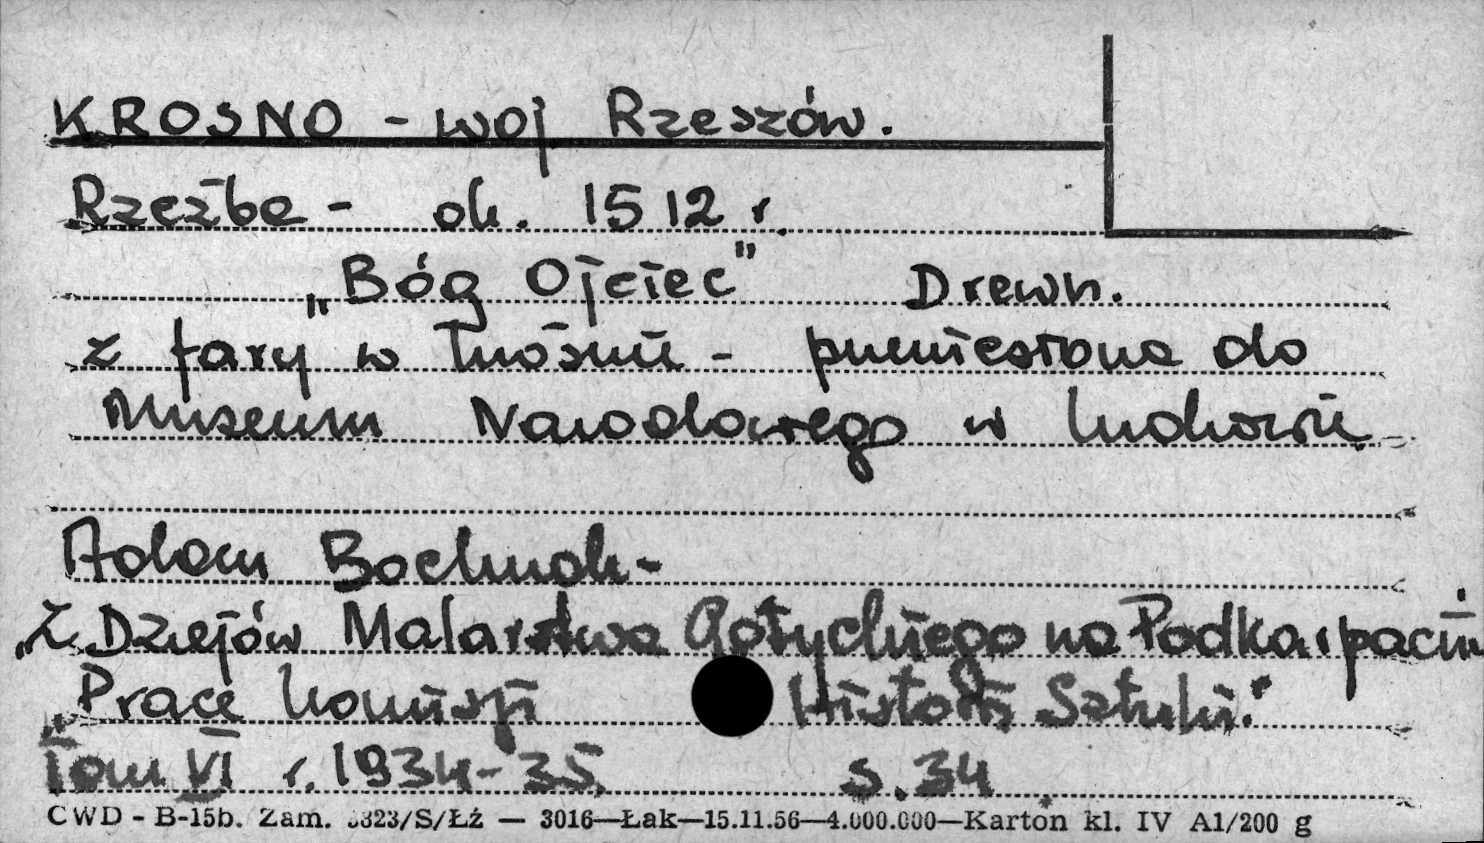 KROSNO - woj Rzeszów.
Rzeźba - ok. 1512 r.
„Bóg Ojciec" Drewn.
z fary w Krośnie - przeniesiona do
Muzeum Narodowego w Krakowie
Adam Bochnak -
„Z Dziejów Malarstwa Gotyckiego na Podkarpaciu
„Prace Komisji Historii Sztuki."
Tom VI r. 1934-35. s. 34
CWD - B-15b. Zam. 3323/S/Łź — 3016—Łak—15.11.56—4.000.000—Karton kl. IV A1/200 g